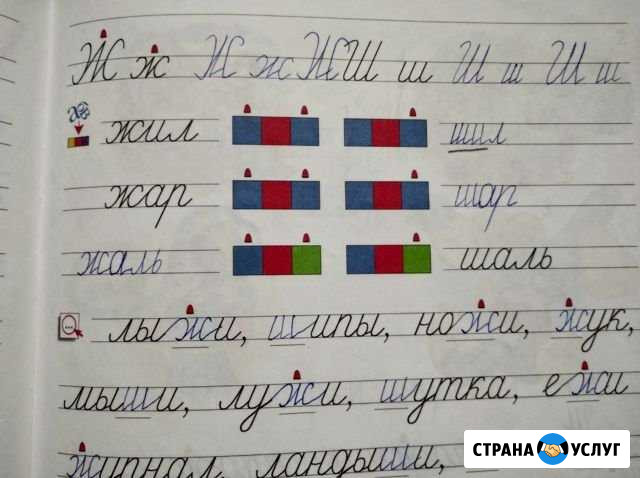 Ж ж Ж ж Ж Ш ш Ш ш Ш ш
жил шил
жар шар
жаль шаль
лыжи, шипы, ножи, жук,
мыши, лужи, шутка, ежи
журнал, ландыши,
СТРАНА УСЛУГ